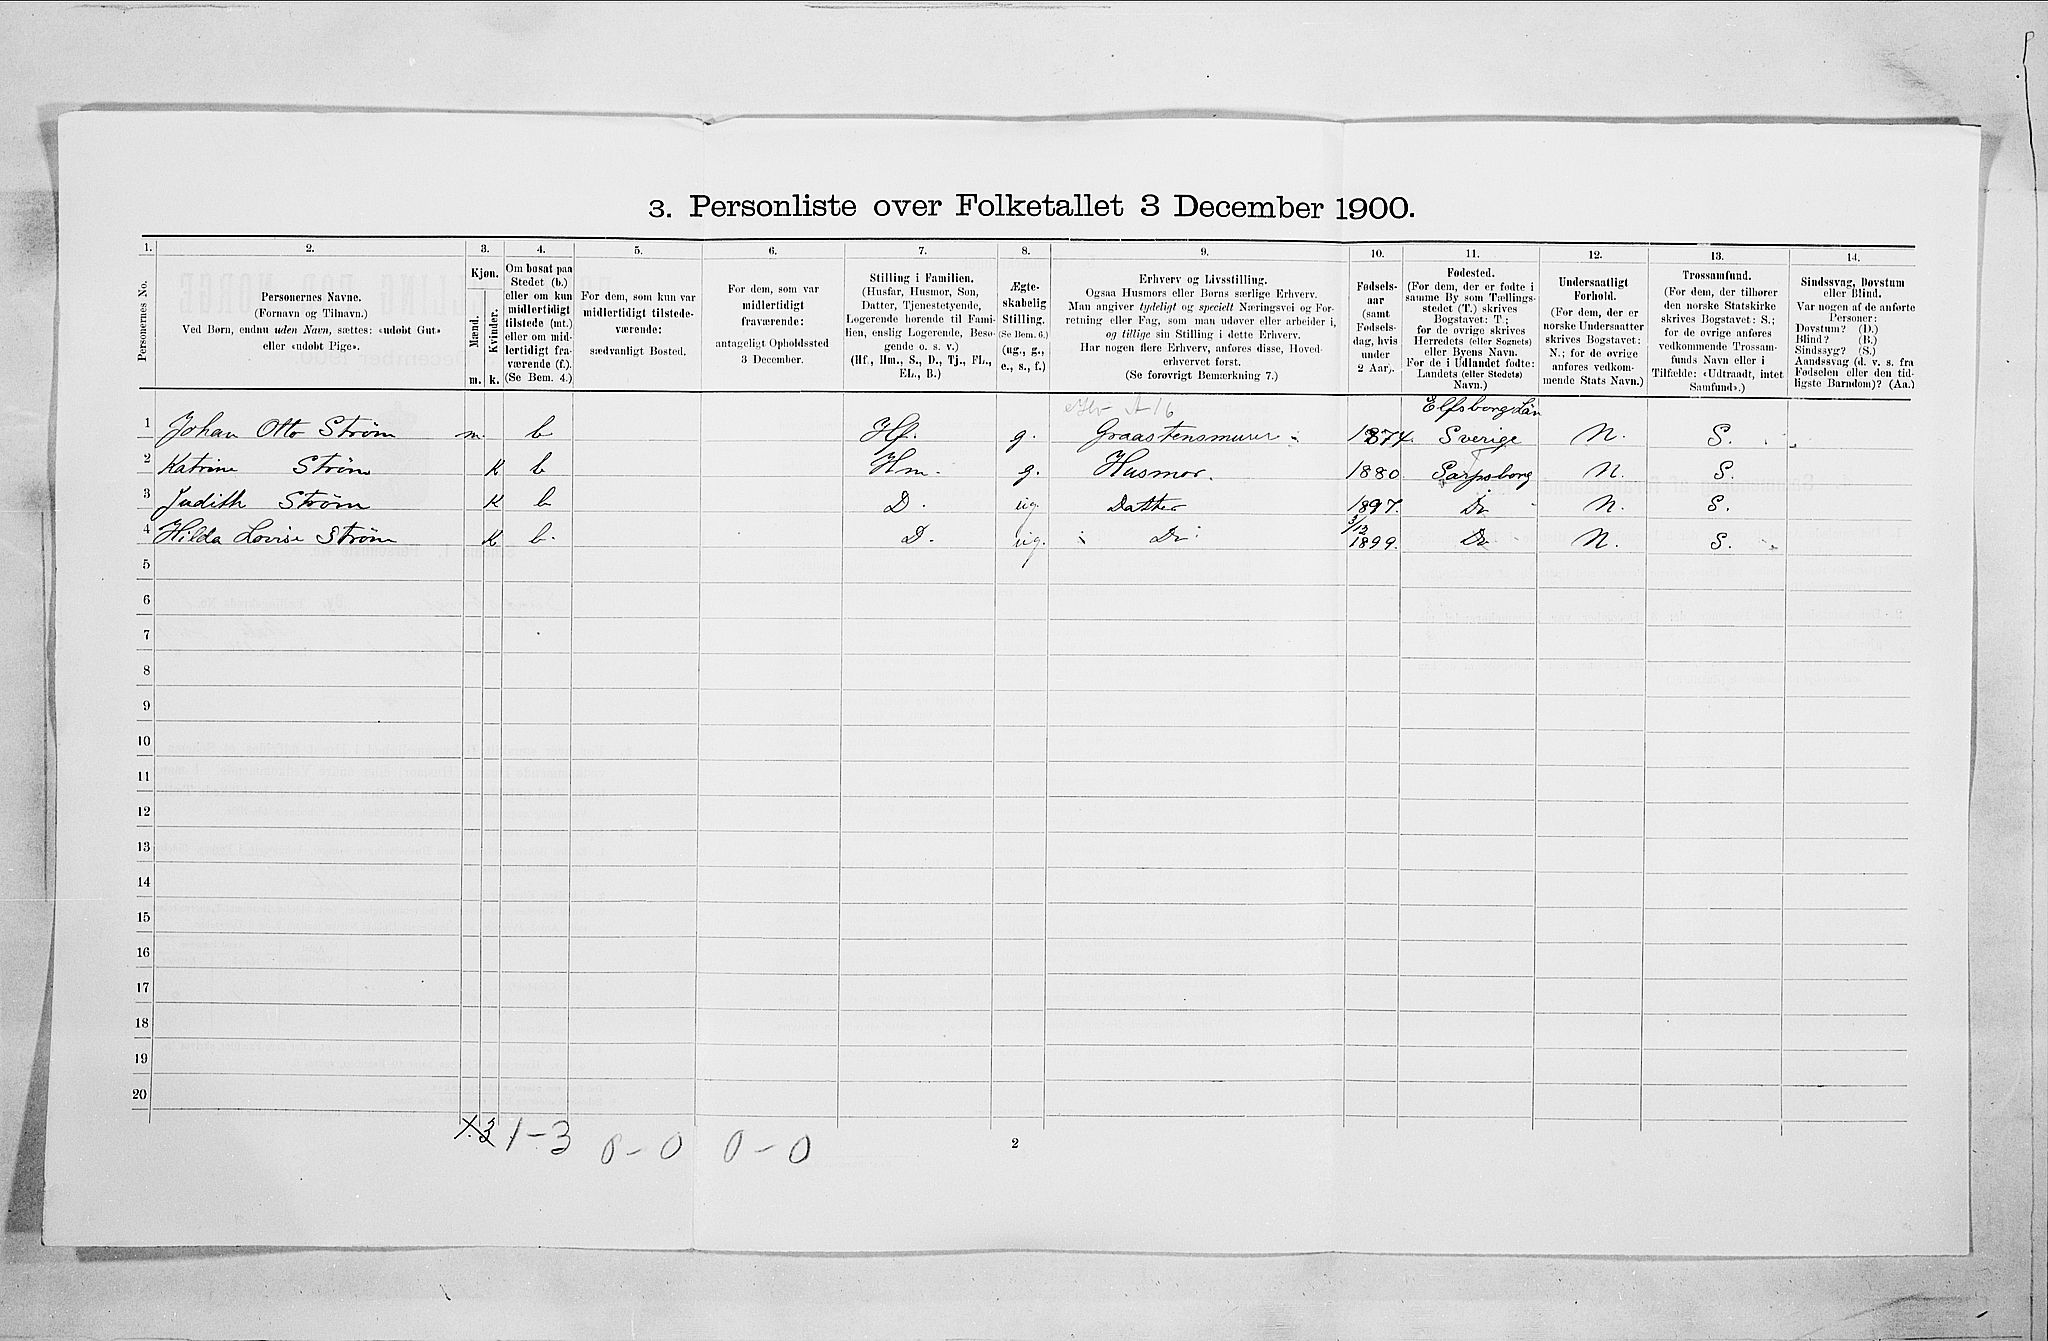 3. Personliste over Folketallet 3 December 1900.
1. 2. 3. 4. 5. 6. 7. 8. 9. 10. 11. 12. 13. 14.
Personernes No.
Personernes Navne.
(Fornavn og Tilnavn.)
Ved Børn, endnu uden Navn, sættes: «udøbt Gut»
eller «udøbt Pige».
Kjøn.
Mænd.
Kvinder.
m. k.
Om bosat paa
Stedet (b.)
eller om kun
midlertidigt
tilstede (mt.)
eller om mid-
lertidigt fra-
værende (f.).
(Se Bem. 4.)
For dem, som kun var
midlertidigt tilstede-
værende:
sædvanligt Bosted.
For dem, som var
midlertidigt
fraværende:
antageligt Opholdssted
3 December.
Stilling i Familien.
(Husfar, Husmor, Søn,
Datter, Tjenestetyende,
Logerende hørende til Fami-
lien, enslig Logerende, Besø-
gende o. s. v.)
(Hf., Hm., S., D., Tj., FL.,
EL., B.)
Ægte-
skabelig
Stilling.
(Se Bem. 6.)
(ug., g.,
e., s., f.)
Erhverv og Livsstilling.
Ogsaa Husmors eller Børns særlige Erhverv.
Man angiver tydeligt og specielt Næringsvei og For-
retning eller Fag, som man udøver eller arbeider i,
og tillige sin Stilling i dette Erhverv.
Har nogen flere Erhverv, anføres disse, Hoved-
erhvervet først.
(Se forøvrigt Bemærkning 7.)
Fødsels-
aar
(samt
Fødsels-
dag, hvis
under
2 Aar).
Fødested.
(For dem, der er fødte i
samme By som Tællings-
stedet (T.) skrives
Bogstavet: T;
for de øvrige skrives
Herredets (eller Sognets)
eller Byens Navn.
For de i Udlandet fødte:
Landets (eller Stedets)
Navn.)
Undersaatligt
Forhold.
(For dem, der er
norske Undersaatter
skrives Bogstavet:
N.; for de øvrige
anføres vedkom-
mende Stats Navn.)
Trossamfund.
(For dem, der tilhører
den norske Statskirke
skrives Bogstavet: S.;
for de øvrige anføres
vedkommende Trossam-
funds Navn eller i
Tilfælde: «Udtraadt, intet
Samfund».)
Sindssvag, Døvstum
eller Blind.
Var nogen af de anførte
Personer:
Døvstum? (D.)
Blind? (B.)
Sindssyg? (S.)
Aandssvag (d. v. s. fra
Fødselen eller den tid-
ligste Barndom)? (Aa.)
A 16 Elfsborg Län
1 Johan Otto Strøm m. b Hf. g. Graastensmurer 1874. Sverige N. S.
2 Katrine Strøm K b Hm. g. Husmor. 1880. Sarpsborg N. S.
3 Judith Strøm K b D. ug. Datter 1897. Do N. S.
4 Hilda Lovise Strøm K b. D. ug. Do 3/12 1899. Do N. S.
5
6
7
8
9
10
11
12
13
14
15
16
17
18
19
20
1.3 1-3 0-0 0-0
2